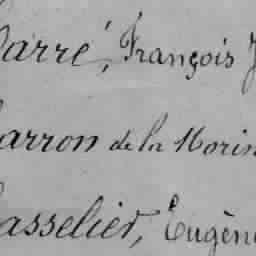 Carré, François J
Carron de la Morin
Casselier, Eugène